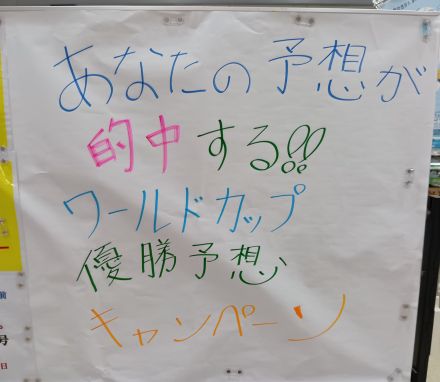 あなたの予想が
的中する!!
ワールドカップ
優勝予想
キャンペーン
前
号
日